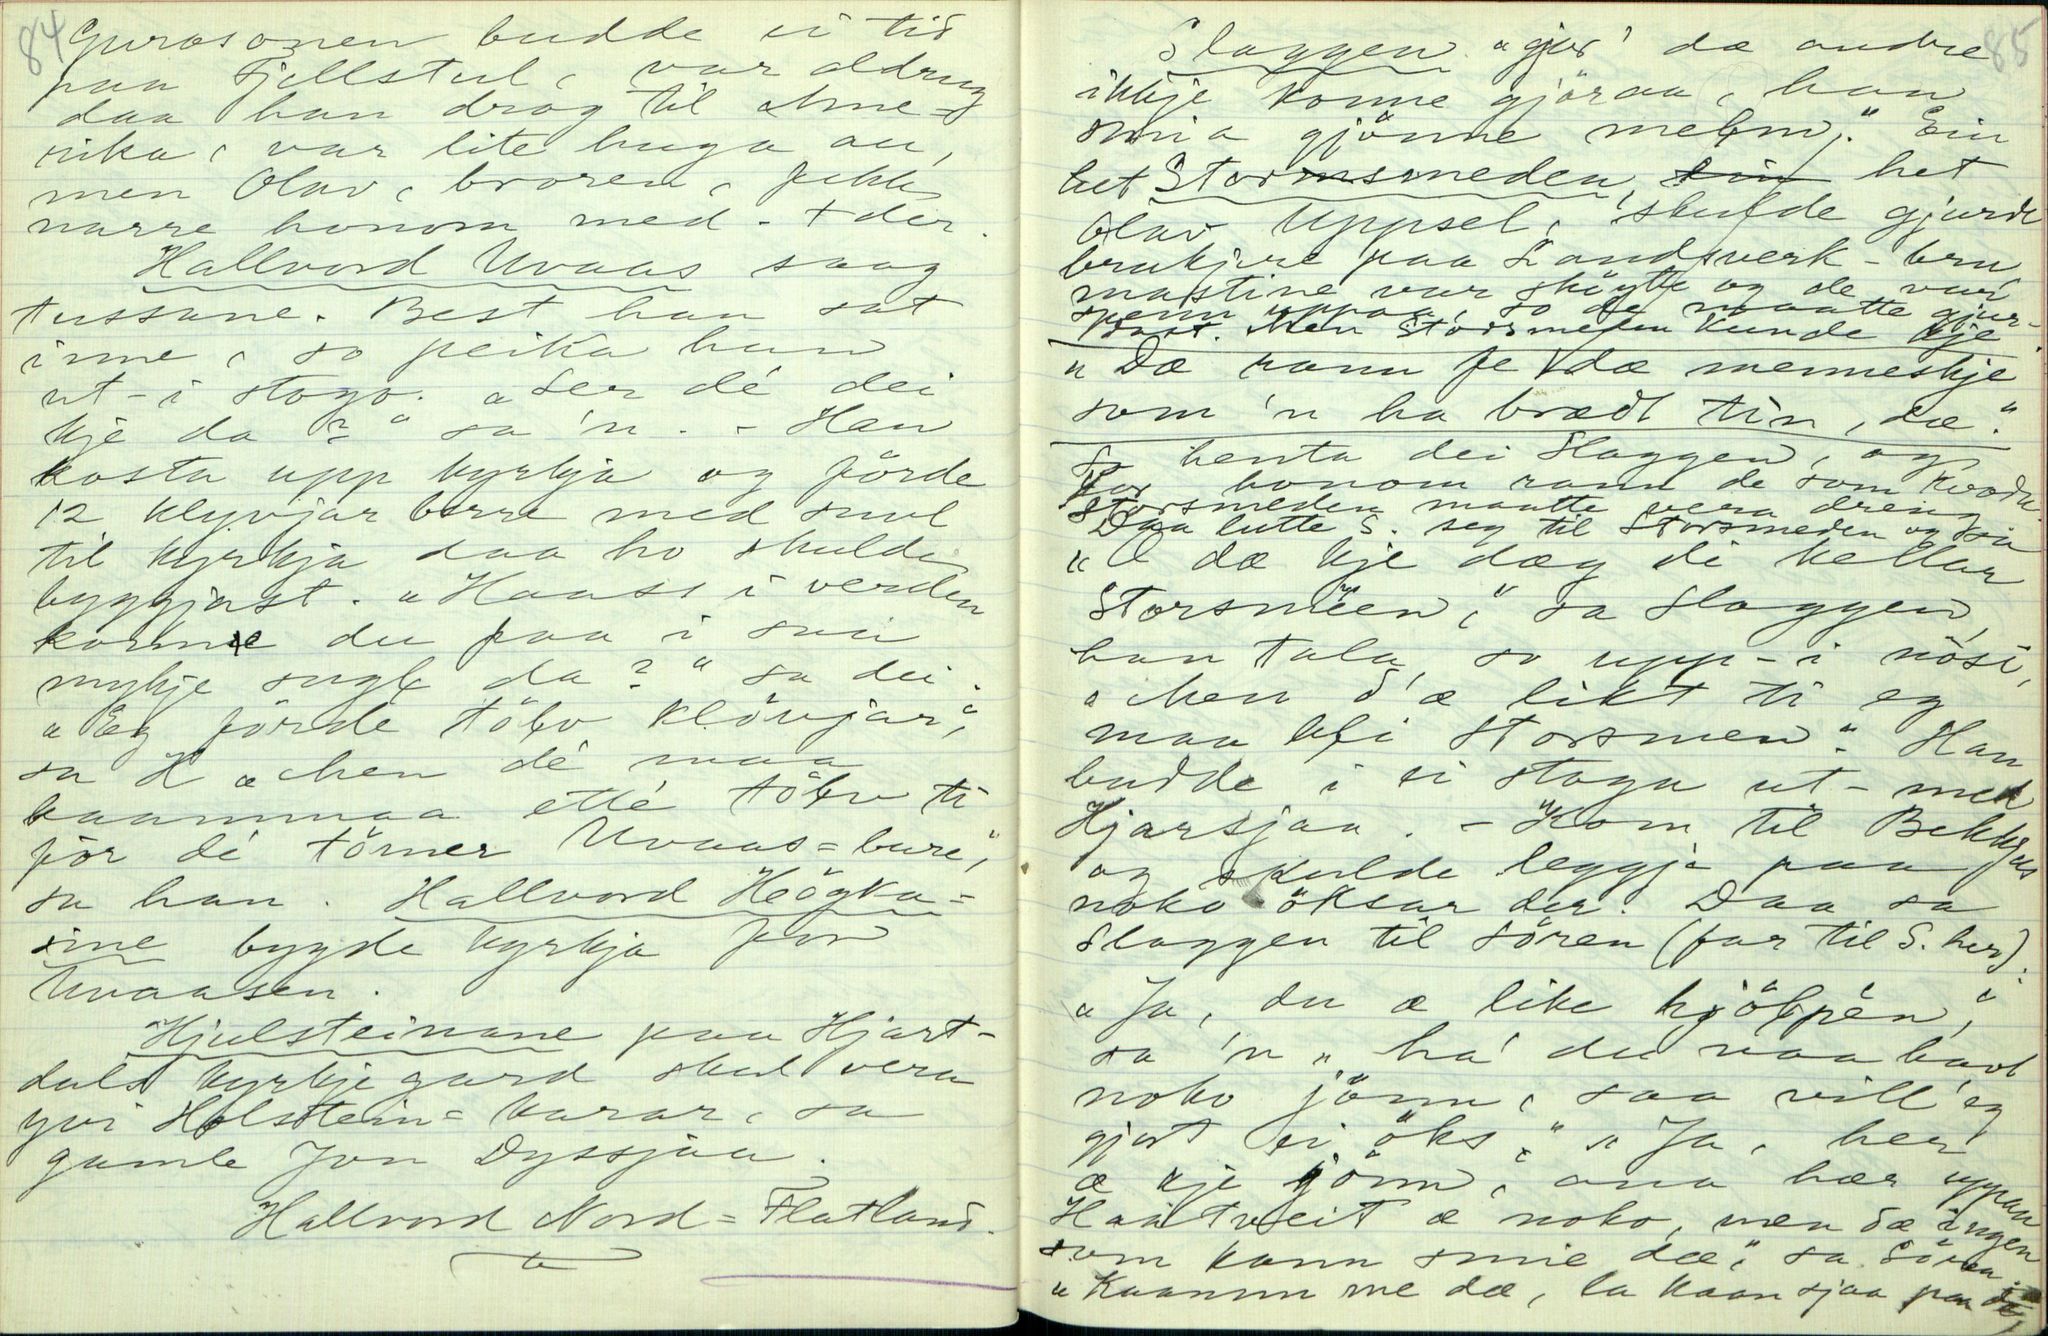 84
Gurosonen budde ei tid
paa Fjellstul, var aldrug
daa han drog til Ame-
rika, var lite huga au,
men Olav, broren, fekk
narre honom med. + der.
Hallvord Uvaas saag
tussane. Best han sat
inne, so peika han
ut-i stogo. "Ser dé dei
kje da?" sa 'n. - Han
kosta upp kyrkja og förde
12 klyvjar berre med suvl
til kyrkja daa ho skulde
byggjast. "Haass i verden
komme du paa i
mykje sugl da?" sa dei.
"Eg förde tölv klövjar",
sa H "Men dé maa
kaammaa etté tölv ti
för dé tömer Uvaas=bure",
sa han. Hallvord Högka=
sine bygde kyrkja for
Uvaasen.
Hjulsteinane paa Hjart-
dals kyrkjegard skal vera
yvi Holstein=karar, sa
gamle Jon Dyssjaa.
Hallvord Nord=Flatland.
85
Slaggen "gjer' dæ andre
ikkje konne gjöraa, han
smia gjönne melom". Ein
het Storsmeden, het
Olav Uppsel, skulde gjurde
brukjere paa Landsverk-bru,
mastine var sköytte og de var
spenn uppaa, so de maatte gjur-
dast. Men Storsmeden kunde kje.
"Dæ rann fe dæ menneskje
som 'n ha brædt tin, dæ."
So henta dei Slaggen, og
for honom rann de som kvoda.
Storsmeden maatte vera dreng
Daa lutte S. seg til Storsmeden og sa
"Æ dæ kje dæg di kallar
Storsmeen," sa Slaggen,
han tala so upp-i nösi,
"Men d'æ likt ti eg
maa bli Storsmen." Han
budde i ei stogu ut-med
Hjarsjaa. - Kom til Bekkhus
og skulde leggja paa
noko öksar der. Daa sa
Slaggen til Sören (far til S. her):
"Ja, du æ like kjölpén",
sa 'n "ha' du naa havt
noko jönn, saa vill eg
gjort ei öks." "Ja, her
æ kje jönn, ana hær uppaa
Haatveit æ noko, men dæ ingen
som kann smie dæ", sa Sören.
"Kaamm me dæ, la kaan sjaa paa dæ,